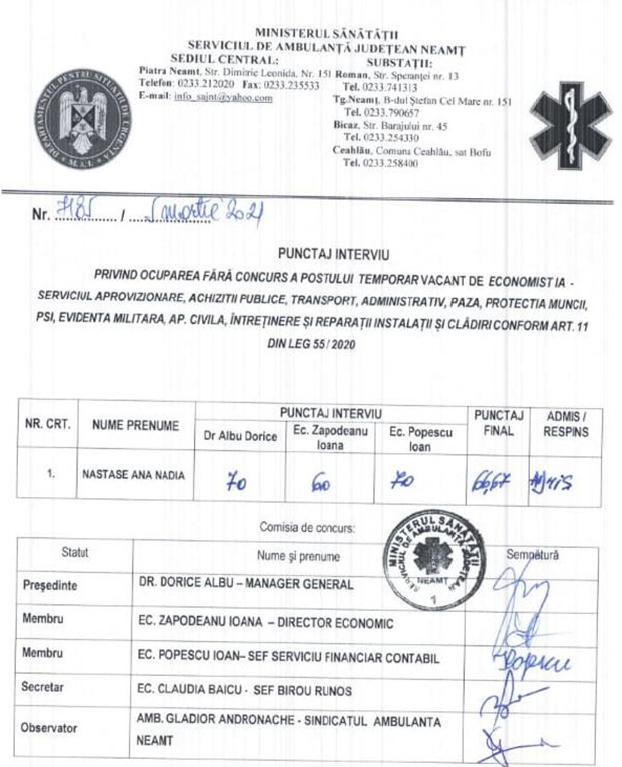 MINISTERUL SĂNĂTĂŢII
SERVICIUL DE AMBULANŢĂ JUDEŢEAN NEAMŢ
SEDIUL CENTRAL:
Piatra Neamt, Str. Dimitrie Leonida, Nr. 151
Telefon: 0233.212020 Fax: 0233.235533
E-mail: info_sajnt@yahoo.com
SUBSTAŢII:
Roman, Str. Speranţei nr. 13
Tel. 0233.741313
Tg.Neamţ, B-dul Ştefan Cel Mare nr. 151
Tel. 0233.790657
Bicaz, Str. Barajului nr. 45
Tel. 0233.254330
Ceahlău, Comuna Ceahlău, sat Bofu
Tel. 0233.258400
DEPARTAMENTUL PENTRU SITUAŢII DE URGENŢĂ
M.A.I.
Nr. 7185 / 5 martie 2021
PUNCTAJ INTERVIU
PRIVIND OCUPAREA FĂRĂ CONCURS A POSTULUI TEMPORAR VACANT DE ECONOMIST IA -
SERVICIUL APROVIZIONARE, ACHIZITII PUBLICE, TRANSPORT, ADMINISTRATIV, PAZA, PROTECTIA MUNCII,
PSI, EVIDENTA MILITARA, AP. CIVILA, ÎNTREŢINERE ŞI REPARAŢII INSTALAŢII ŞI CLĂDIRI CONFORM ART. 11
DIN LEG 55/2020
NR. CRT. NUME PRENUME PUNCTAJ INTERVIU PUNCTAJ FINAL ADMIS / RESPINS
Dr Albu Dorice Ec. Zapodeanu Ioana Ec. Popescu Ioan
1. NASTASE ANA NADIA 70 60 70 66,67 Admis
Comisia de concurs:
MINISTERUL SĂNĂTĂŢII
SERVICIUL DE AMBULANŢĂ JUDEŢEAN
NEAMŢ
1
Statut Nume şi prenume Semnătură
Preşedinte DR. DORICE ALBU – MANAGER GENERAL
Membru EC. ZAPODEANU IOANA – DIRECTOR ECONOMIC
Membru EC. POPESCU IOAN– SEF SERVICIU FINANCIAR CONTABIL Popescu
Secretar EC. CLAUDIA BAICU - SEF BIROU RUNOS
Observator AMB. GLADIOR ANDRONACHE - SINDICATUL AMBULANTA
NEAMT